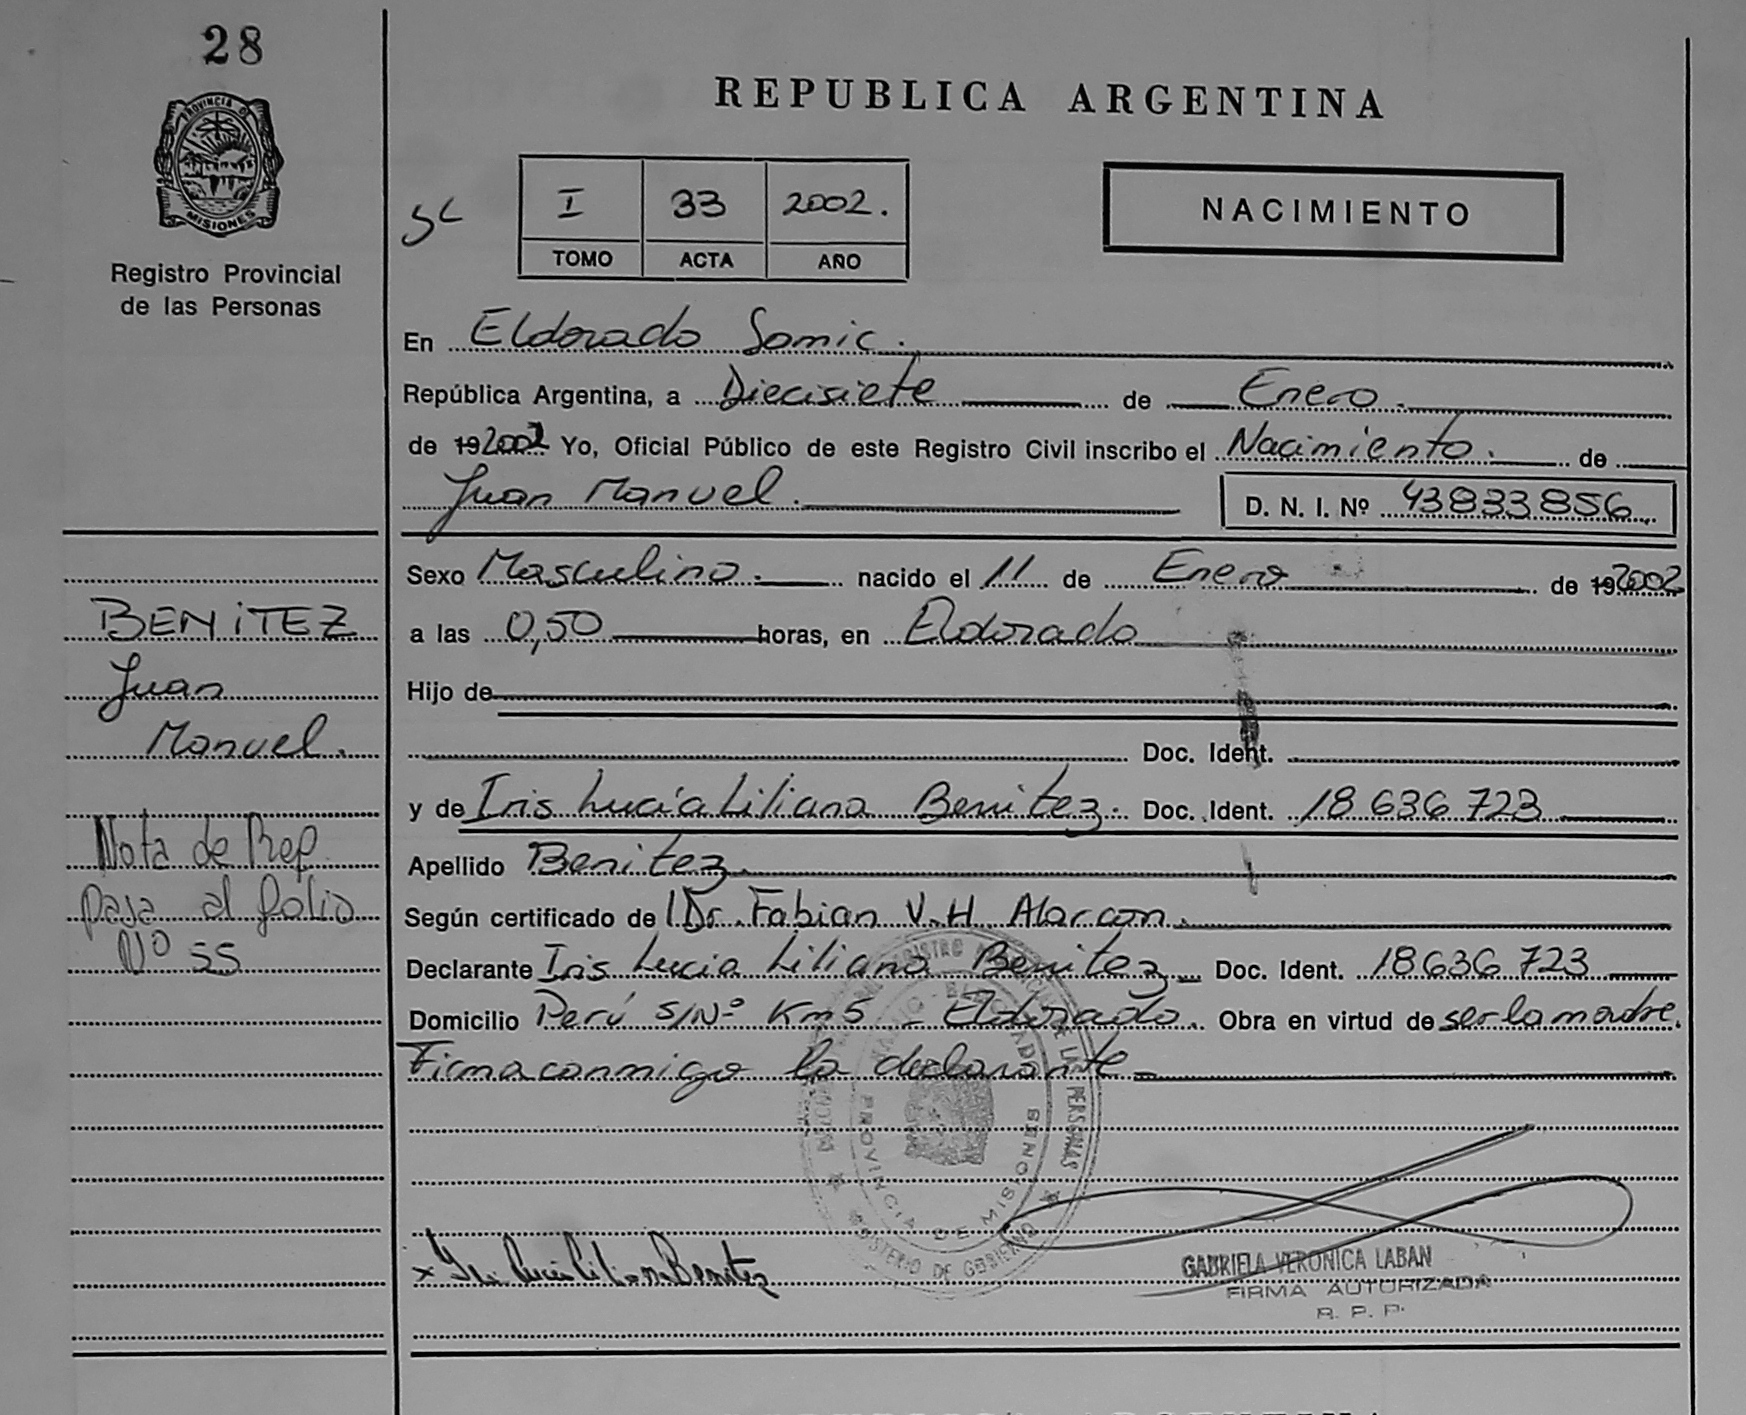 28
PROVINCIA DE
MISIONES
Registro Provincial
de las Personas
REPUBLICA ARGENTINA
I 33 2002.
TOMO ACTA AÑO
NACIMIENTO
En Eldorado Samic.
República Argentina, a Diecisiete de Enero.
de 192002 Yo, Oficial Público de este Registro Civil inscribo el Nacimiento. de
Juan Manuel. D. N. I. Nº 43833856
Sexo Masculino. nacido el 11 de Enero de 192002
a las 0,50 horas, en Eldorado
Hijo de
Doc. Ident.
y de Iris Lucía Liliana Benitez. Doc. Ident. 18.636.723
Apellido Benitez
Según certificado de Dr. Fabian V.H. Alarcon.
Declarante Iris Lucia Liliana Benitez Doc. Ident. 18636723
Domicilio Perú S/Nº Km5 - Eldorado. Obra en virtud de ser la madre.
Firma conmigo la declarante
BENITEZ
Juan
Manuel.
Nota de Rep.
pasa al folio
Nº 55
PROVINCIA DE MISIONES
MINISTERIO DE GOBIERNO
x Iris Lucia Liliana Benitez
GABRIELA VERONICA LABAN
FIRMA AUTORIZADA
R. P. P.